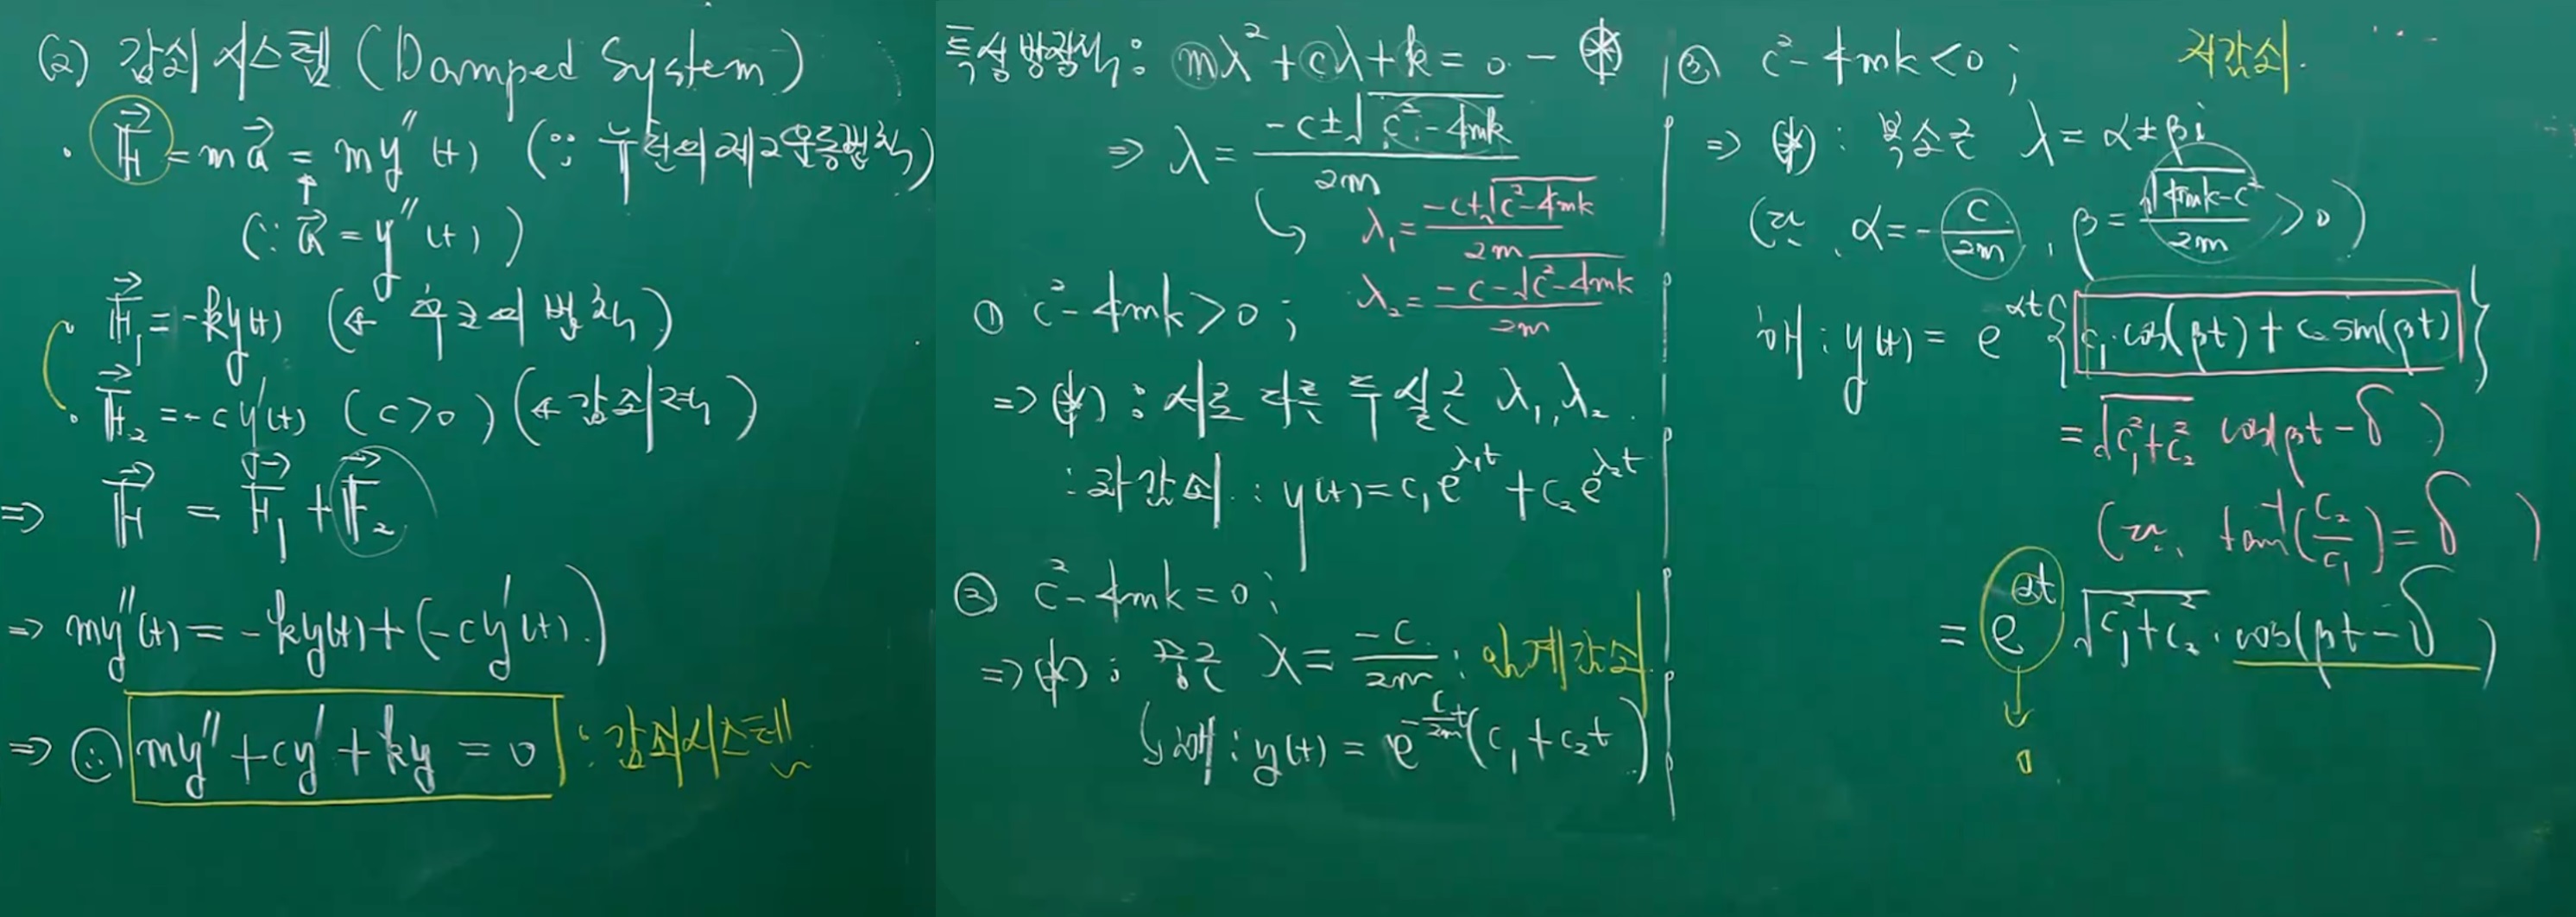 (2) 감쇠 시스템 (Damped System)
· F⃗ = ma⃗ = my″(t) (∵ 뉴턴의 제2운동법칙)
(∵ a⃗ = y″(t))
· F⃗₁ = -ky(t) (← 후크의 법칙)
· F⃗₂ = -cy′(t) (c>0) (← 감쇠력)
⇒ F⃗ = F⃗₁ + F⃗₂
⇒ my″(t) = -ky(t) + (-cy′(t))
⇒ ∴ my″ + cy′ + ky = 0 : 감쇠시스템
특성방정식 : mλ² + cλ + k = 0 - ⊛
⇒ λ = (-c±√(c²-4mk))/2m
λ₁ = (-c+√(c²-4mk))/2m
λ₂ = (-c-√(c²-4mk))/2m
① c²-4mk>0 ;
⇒ (*) : 서로 다른 두 실근 λ₁, λ₂.
: 과감쇠 : y(t) = c₁e^(λ₁t) + c₂e^(λ₂t)
② c²-4mk=0 ;
⇒ (*) : 중근 λ = -c/2m : 임계감쇠
해 : y(t) = e^(-(c/2m)t)(c₁+c₂t)
③ c²-4mk<0 ; 저감쇠.
⇒ (*) : 복소근 λ = α±βi
( α = -c/2m , β = √(4mk-c²)/2m > 0 )
해 : y(t) = e^(αt){c₁·cos(βt) + c₂sin(βt)}
= √(c₁²+c₂²) cos(βt-δ)
( tan⁻¹(c₂/c₁) = δ )
= e^(αt) √(c₁²+c₂²)·cos(βt-δ)
↓
0